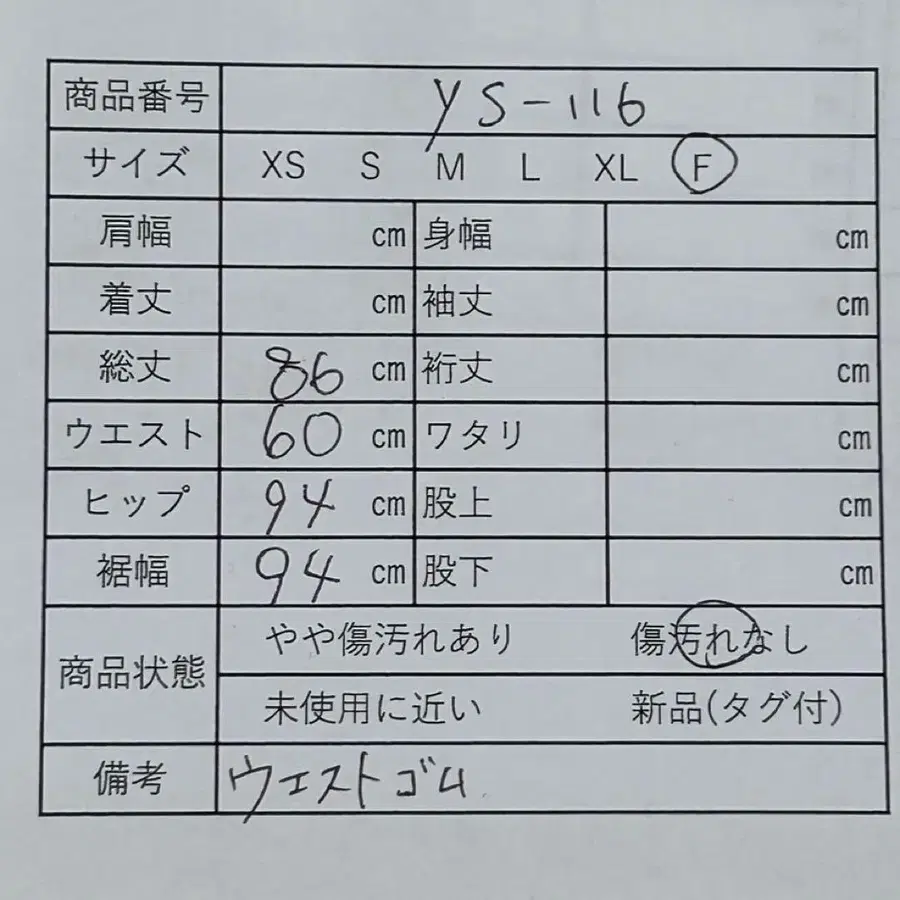 商品番号 YS-116
サイズ XS S M L XL F
肩幅 cm 身幅 cm
着丈 cm 袖丈 cm
総丈 86 cm 裄丈 cm
ウエスト 60 cm ワタリ cm
ヒップ 94 cm 股上 cm
裾幅 94 cm 股下 cm
商品状態 やや傷汚れあり 傷汚れなし
未使用に近い 新品(タグ付)
備考 ウエストゴム